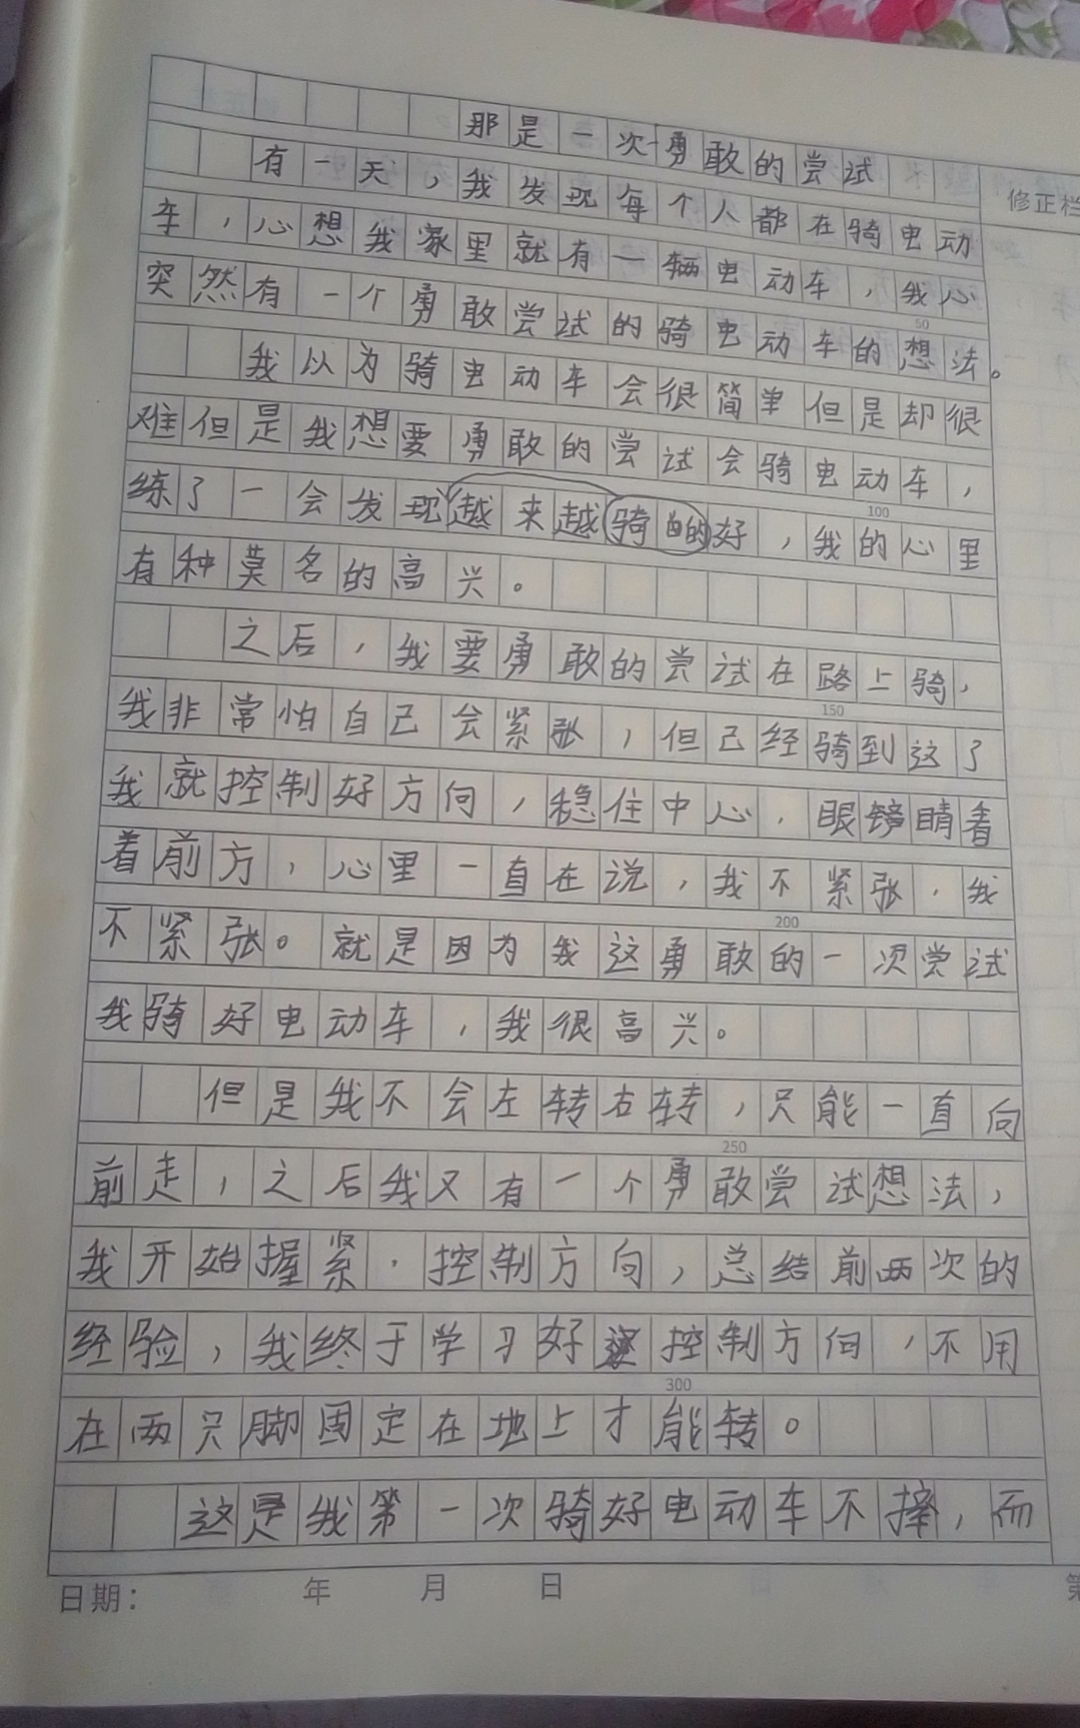 那是一次勇敢的尝试
修正栏
有一天，我发现每个人都在骑电动
车，心想我家里就有一辆电动车，我心
突然有一个勇敢尝试的骑电动车的想法。
50
我以为骑电动车会很简单但是却很
难但是我想要勇敢的尝试会骑电动车，
练了一会发现越来越骑的好，我的心里
100
有种莫名的高兴。
之后，我要勇敢的尝试在路上骑，
我非常怕自己会紧张，但已经骑到这了
150
我就控制好方向，稳住中心，眼镜睛看
着前方，心里一直在说，我不紧张，我
不紧张。就是因为我这勇敢的一次尝试
200
我骑好电动车，我很高兴。
但是我不会左转右转，只能一直向
前走，之后我又有一个勇敢尝试想法，
250
我开始握紧，控制方向，总结前两次的
经验，我终于学习好控制方向，不用
在两只脚固定在地上才能转。
300
这是我第一次骑好电动车不摔，而
日期： 年 月 日 第